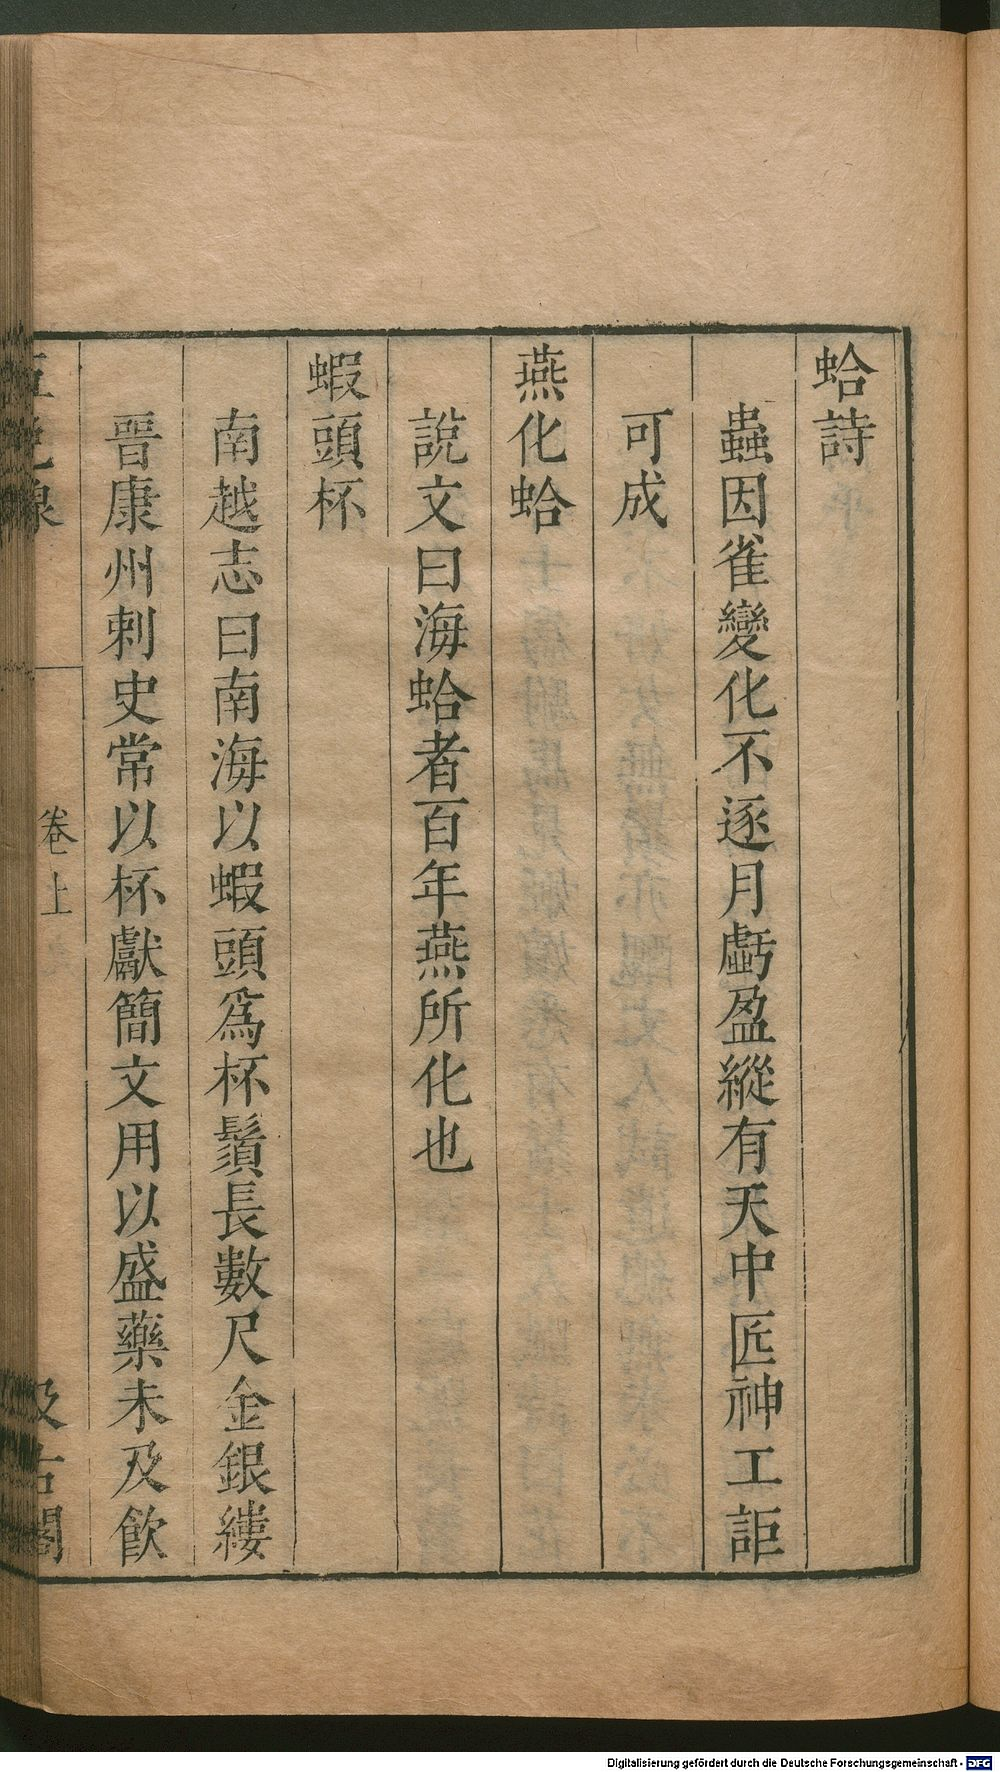 蛤詩
蟲因雀變化不逐月虧盈縱有天中匠神工詎
可成
燕化蛤
說文曰海蛤者百年燕所化也
蝦頭杯
南越志曰南海以蝦頭爲杯鬚長數尺金銀縷
晉康州刺史常以杯獻簡文用以盛藥未及飮
卷上
古閣
Digitalisierung gefördert durch die Deutsche Forschungsgemeinschaft - DFG